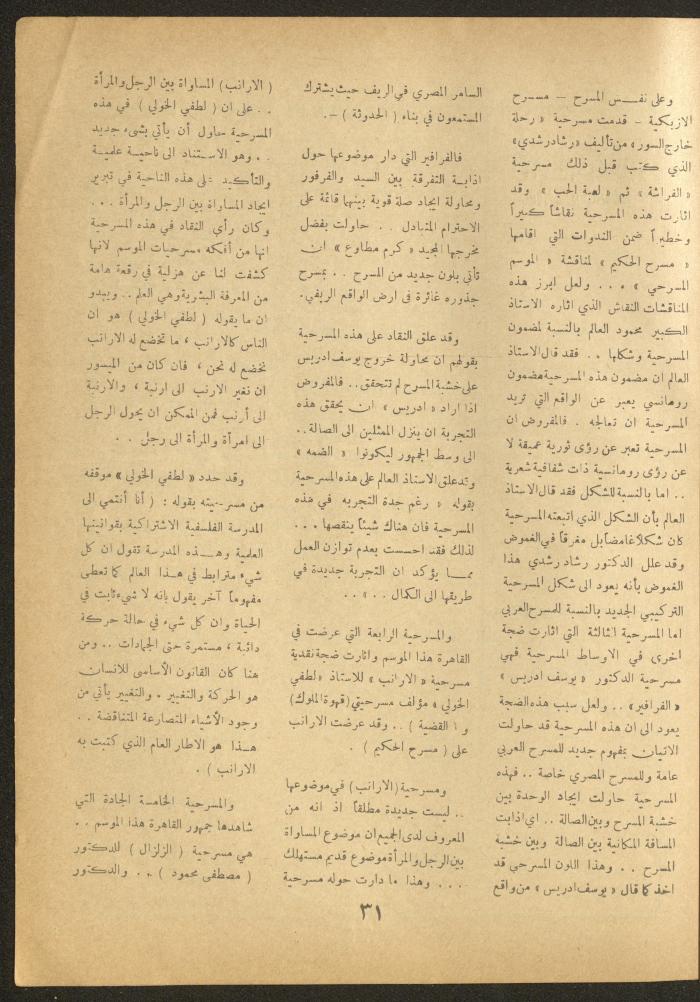 وعلى نفس المسرح – مسرح
الازبكية – قدمت مسرحية « رحلة
خارج السور » من تأليف « رشاد رشدي »
الذي كتب قبل ذلك مسرحية
« الفراشة » ثم « لعبة الحب » وقد
اثارت هذه المسرحية نقاشاً كبيراً
وخطيراً ضمن الندوات التي اقامها
« مسرح الحكيم » لمناقشة « الموسم
المسرحي » ... ولعل ابرز هذه
المناقشات النقاش الذي اثاره الاستاذ
الكبير محمود العالم بالنسبة لمضمون
المسرحية وشكلها .. فقد قال الاستاذ
العالم ان مضمون هذه المسرحية مضمون
رومانسي يعبر عن الواقع التي تريد
المسرحية ان تعالجه . فالمفروض ان
المسرحية تعبر عن رؤى ثورية عميقة لا
عن رؤى رومانسية ذات شفافية شعرية
.. اما بالنسبة للشكل فقد قال الاستاذ
العالم بأن الشكل الذي اتبعته المسرحية
كان شكلاً غامضاً بل مغرقاً في الغموض
وقد علل الدكتور رشاد رشدي هذا
الغموض بأنه يعود الى شكل المسرحية
التركيبي الجديد بالنسبة للمسرح العربي
اما المسرحية الثالثة التي اثارت ضجة
اخرى في الاوساط المسرحية فهي
مسرحية الدكتور « يوسف ادريس »
« الفرافير » .. ولعل سبب هذه الضجة
يعود الى ان هذه المسرحية قد حاولت
الاتيان بمفهوم جديد للمسرح العربي
عامة وللمسرح المصري خاصة .. فهذه
المسرحية حاولت ايجاد الوحدة بين
خشبة المسرح وبين الصالة .. اي اذابت
المسافة المكانية بين الصالة وبين خشبة
المسرح .. وهذا اللون المسرحي قد
اخذ كما قال « يوسف ادريس » من واقع
السامر المصري في الريف حيث يشترك
المستمعون في بناء ( الحدوثة ) –.
فالفرافير التي دار موضوعها حول
اذابة التفرقة بين السيد والفرفور
ومحاولة ايجاد صلة قوية بينهما قائمة على
الاحترام المتبادل .. حاولت بفضل
مخرجها المجيد « كرم مطاوع » ان
تأتي بلون جديد من المسرح .. بمسرح
جذوره غائرة في ارض الواقع الريفي.
وقد علق النقاد على هذه المسرحية
بقولهم ان محاولة خروج يوسف ادريس
على خشبة المسرح لم تتحقق .. فالمفروض
اذا اراد « ادريس » ان يحقق هذه
التجربة ان ينزل الممثلين الى الصالة ..
الى وسط الجمهور ليكونوا « الضمه »
وقد علق الاستاذ العالم على هذه المسرحية
بقوله « رغم جدة التجربه في هذه
المسرحية فان هناك شيئاً ينقصها ...
لذلك فقد احسست بعدم توازن العمل
مما يؤكد ان التجربة جديدة في
طريقها الى الكمال .. » ..
والمسرحية الرابعة التي عرضت في
القاهرة هذا الموسم واثارت ضجة نقدية
مسرحية « الارانب » للاستاذ « لطفي
الخولي » مؤلف مسرحيتي ( قهوة الملوك )
و ( القضية ) .. وقد عرضت الارانب
على ( مسرح الحكيم ) .
ومسرحية ( الارانب ) في موضوعها
.. ليست جديدة مطلقاً اذ انه من
المعروف لدى الجميع ان موضوع المساواة
بين الرجل والمرأة موضوع قديم مستهلك
... وهذا ما دارت حوله مسرحية
( الارانب ) المساواة بين الرجل والمرأة
.. على ان ( لطفي الخولي ) في هذه
المسرحية حاول أن يأتي بشيء جديد
.. وهو الاستناد الى ناحية علمية
والتأكيد على هذه الناحية في تبرير
ايجاد المساواة بين الرجل والمرأة ...
وكان رأي النقاد في هذه المسرحية
انها من أفكه مسرحيات الموسم لانها
كشفت لنا عن هزلية في رقعة هامة
من المعرفة البشرية وهي العلم .. ويبدو
ان ما يقوله ( لطفي الخولي ) هو ان
الناس كالارانب ، ما تخضع له الارانب
نخضع له نحن ، فان كان من الميسور
ان نغير الارنب الى ارنبة ، والارنبة
الى أرنب فمن الممكن ان يحول الرجل
الى امرأة والمرأة الى رجل ..
وقد حدد « لطفي الخولي » موقفه
من مسرحيته بقوله : ( أنا أنتمي الى
المدرسة الفلسفية الاشتراكية بقوانينها
العلمية وهذه المدرسة تقول ان كل
شيء مترابط في هذا العالم كما تعطي
مفهوماً آخر يقول بانه لا شيء ثابت في
الحياة وان كل شيء في حالة حركة
دائبة ، مستمرة حتى الجمادات .. ومن
هنا كان القانون الأساسي للانسان
هو الحركة والتغيير . والتغيير يأتي من
وجود الأشياء المتصارعة المتناقضة ..
هذا هو الاطار العام الذي كتبت به
الارانب ) .
والمسرحية الخامسة الجادة التي
شاهدها جمهور القاهرة هذا الموسم ..
هي مسرحية ( الزلزال ) للدكتور
( مصطفى محمود ) .. والدكتور
٣١